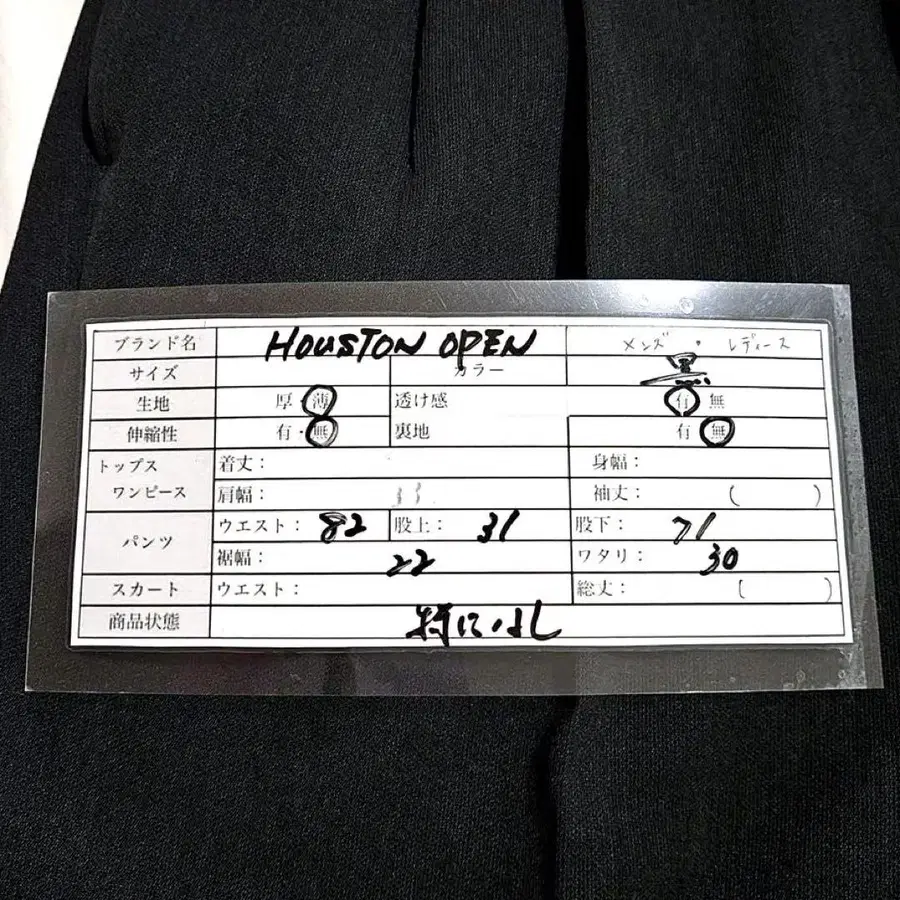 ブランド名 HOUSTON OPEN メンズ ・ レディース
サイズ カラー 黒
生地 厚・薄 透け感 有 無
伸縮性 有・無 裏地 有 無
トップス ワンピース 着丈： 身幅：
肩幅： 袖丈： （ ）
パンツ ウエスト： 82 股上： 31 股下： 71
裾幅： 22 ワタリ： 30
スカート ウエスト： 総丈： （ ）
商品状態 特になし